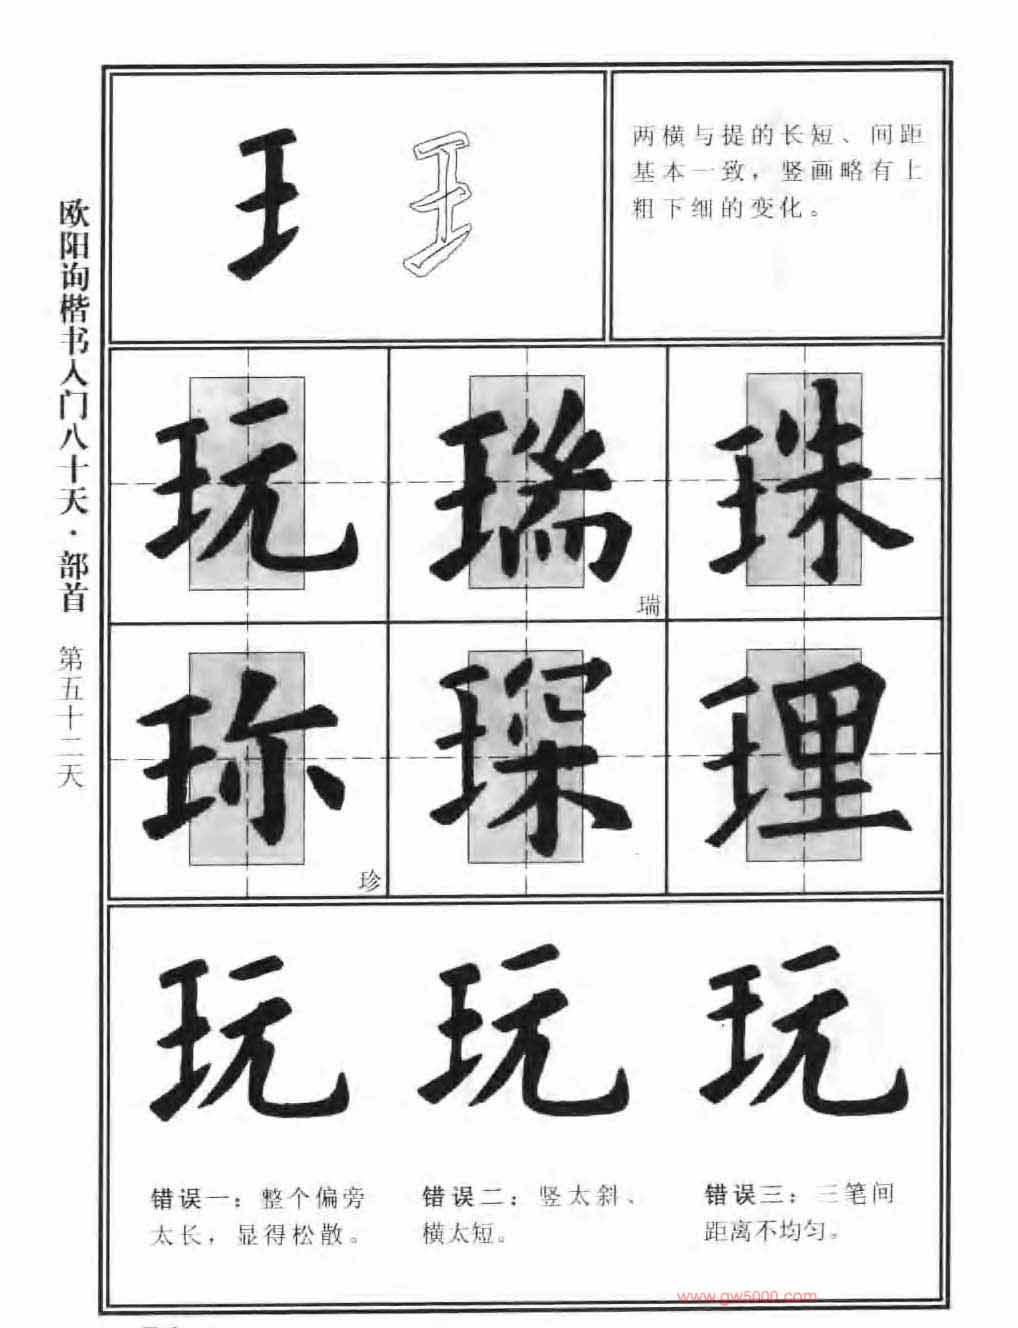 欧阳询楷书入门八十天·部首 第五十二天
王
两横与提的长短、间距
基本一致，竖画略有上
粗下细的变化。
玩 瑞 珠
瑞
珎 琛 理
珍
玩 玩 玩
错误一：整个偏旁
太长，显得松散。
错误二：竖太斜、
横太短。
错误三：三笔间
距离不均匀。
www.gw5000.com